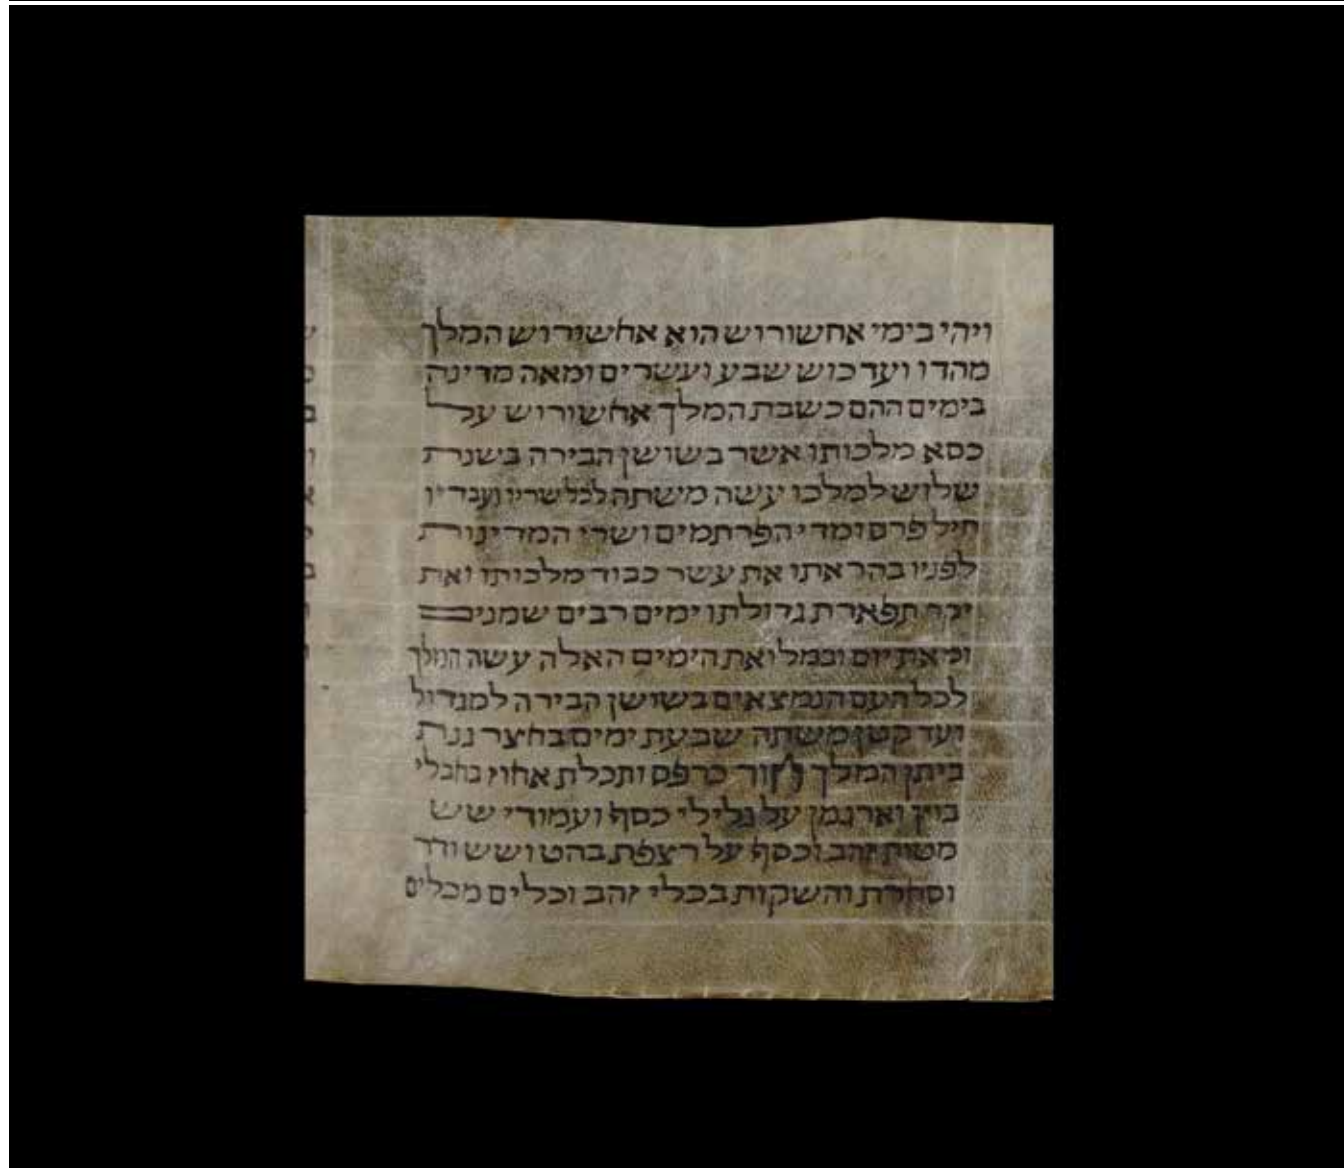 ויהי בימי אחשורוש הוא אחשורוש המלך
מהדו ועד כוש שבע ועשרים ומאה מדינה
בימים ההם כשבת המלך אחשורוש על
כסא מלכותו אשר בשושן הבירה בשנת
שלוש למלכו עשה משתה לכל שריו ועבדיו
חיל פרס ומדי הפרתמים ושרי המדינות
לפניו בהראתו את עשר כבוד מלכותו ואת
יקר תפארת גדולתו ימים רבים שמנים
ומאת יום ובמלואת הימים האלה עשה המלך
לכל העם הנמצאים בשושן הבירה למגדול
ועד קטן משתה שבעת ימים בחצר גנת
ביתן המלך חור כרפס ותכלת אחוז בחבלי
בוץ וארגמן על גלילי כסף ועמודי שש
מטות זהב וכסף על רצפת בהט ושש ודר
וסחרת והשקות בכלי זהב וכלים מכלים